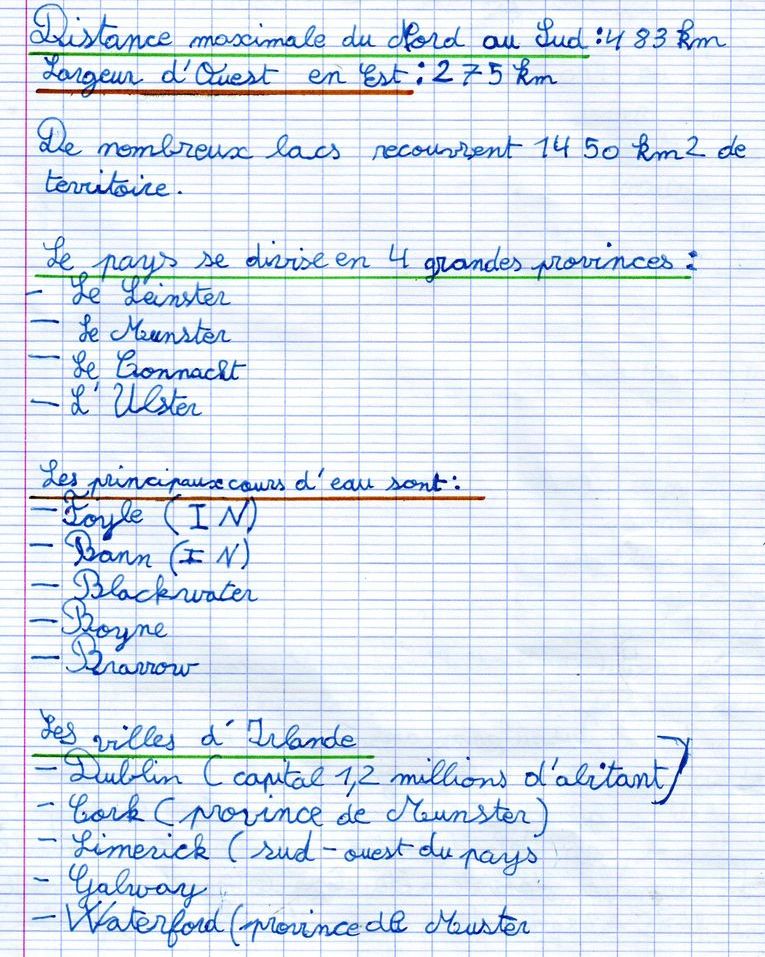 Distance maximale du Nord au Sud : 483 km
Largeur d'Ouest en Est : 275 km
De nombreux lacs recouvrent 1450 km2 de
territoire.
Le pays se divise en 4 grandes provinces :
- Le Leinster
- Le Munster
- Le Connacht
- L'Ulster
Les principaux cours d'eau sont :
- Foyle (I N)
- Bann (I N)
- Blackwater
- Boyne
- Brarrow
Les villes d'Irlande
- Dublin (capital 1,2 millions d'abitant)
- Cork (province de Munster)
- Limerick (sud-ouest du pays
- Galway
- Waterford (province de Muster